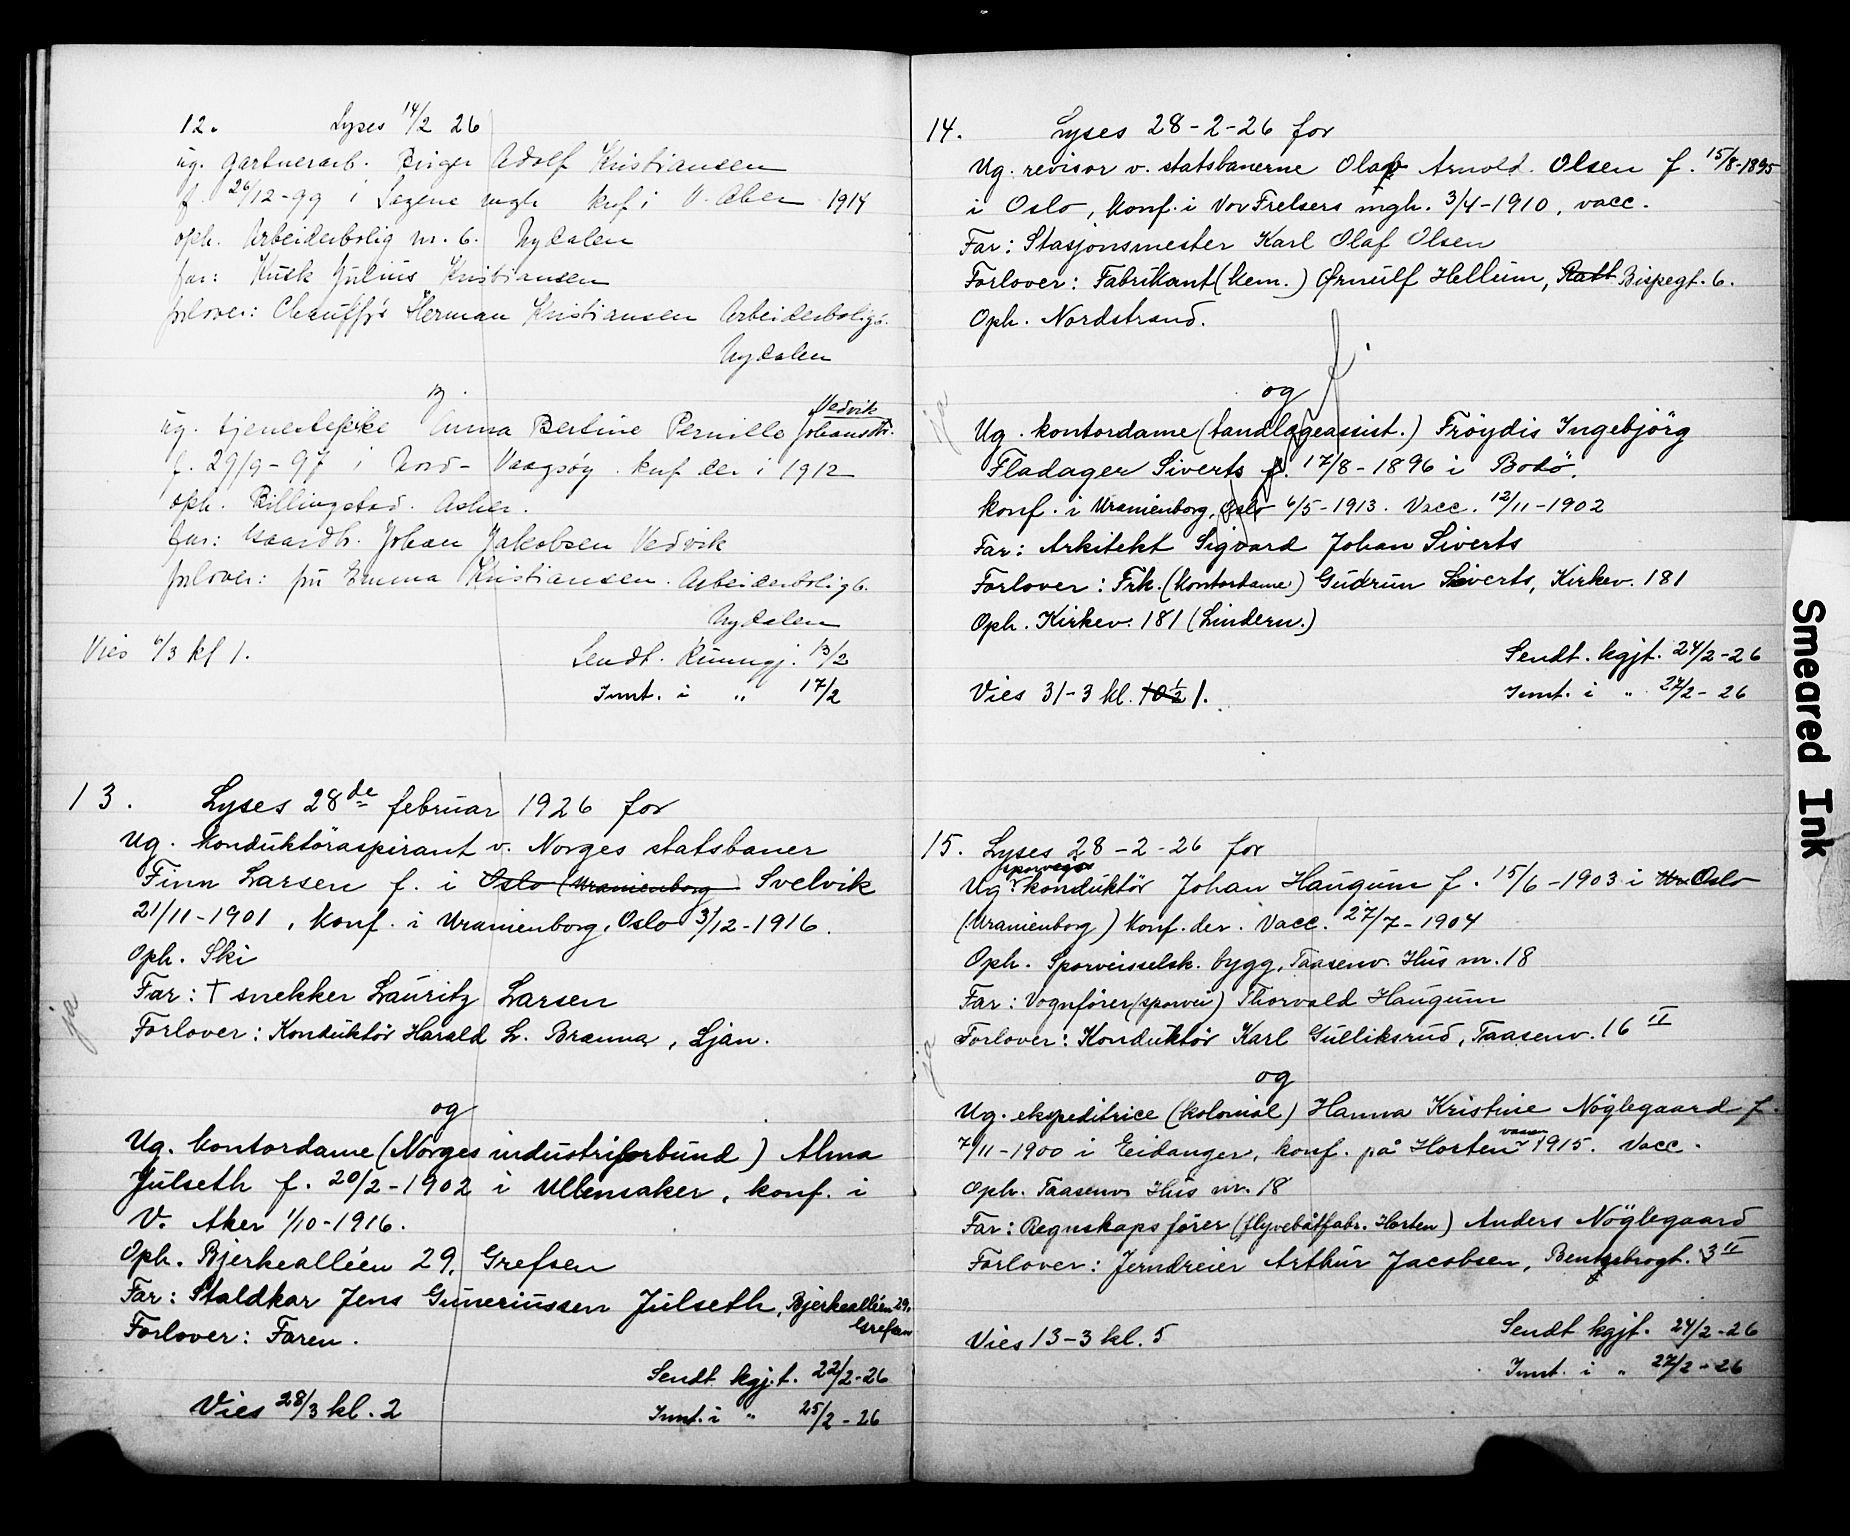 12. Lyses 14/2 26
ug. gartnerarb. Birger Adolf Kristiansen
f. 26/12-99 i Sagene mgh knf i V. Aker 1914
oph. Arbeiderbolig nr. 6. Nydalen
far: Kusk Julius Kristiansen
forlover: Chauffør Herman Kristiansen Arbeiderbolig 6.
Nydalen
og
Vedvik
ug. tjenestepike Anna Bertine Pernille Johansdtr.
f. 29/9-97 i Nord-Vaagsøy. knf der i 1912
oph. Billingstad. Asker.
far: Gaardbr. Johan Jakobsen Vedvik
forlover: fru Emma Kristiansen. Arbeiderbolig 6.
Nydalen
Vies 6/3 kl 1.
Sendt. Kunngj. 13/2
Innt. i " 17/2
13. Lyses 28de februar 1926 for
Ug. konduktöraspirant v. Norges statsbaner
Finn Larsen f. i Oslo (Uranienborg) Svelvik
21/11-1901, konf. i Uranienborg, Oslo 3/12-1916.
Oph. Ski
Far: † snekker Lauritz Larsen
Forlover: Konduktör Harald L. Brænna, Ljan.
ja
og
Ug. kontordame (Norges industriforbund) Alma
Julseth f. 20/2-1902 i Ullensaker, konf. i
V. Aker 1/10-1916.
Oph. Bjerkealléen 29, Grefsen
Far: Staldkar Jens Guneriussen Julseth, Bjerkealléen 29,
Grefsen
Forlover: Faren.
Sendt kgj.t. 22/2-26
Vies 28/3 kl. 2
Innt. i " 25/2-26
14. Lyses 28-2-26 for
Ug. revisor v. statsbanerne Olaf Arnold Olsen f. 15/8-1895
i Oslo, konf. i Vor Frelsers mgh. 3/4-1910, vacc.
Far: Stasjonsmester Karl Olaf Olsen
Forlover: Fabrikant (kem.) Ørnulf Hellum, Bispegt. 6.
Oph. Nordstrand.
f.
ja
og
Ug. kontordame (tandlægeassist.) Frøydis Ingebjörg
Fladager Siverts f. 17/8-1896 i Bodö.
konf. i Uranienborg, Oslo 6/5-1913. Vacc. 12/11-1902
Far: Arkitekt Sigvard Johan Siverts
Forlover: Frk. (kontordame) Gudrun Siverts, Kirkev. 181
Oph. Kirkev. 181 (Lindern.)
Sendt. kgjt. 24/2-26
Vies 31-3 kl. 10½ 1.
Innt. i " 27/2-26
15. Lyses 28-2-26 for
sporveis
Ug konduktör Johan Haugum f. 15/6-1903 i Ur Oslo
(Uranienborg) konf. der. Vacc. 27/7-1904
Oph. Sporveisselsk. bygg, Taasenv. Hus nr. 18
Far: Vognfører (sporvei) Thorvald Haugum
Forlover: Konduktör Karl Gulliksrud, Taasenv. 16 II
ja
og
Ug. ekspeditrice (kolonial) Hanna Kristine Nöglegaard f.
7/11-1900 i Eidanger, konf. på Horten vaaren 1915. Vacc.
Oph. Taasenv. Hus nr. 18
Far: Regnskapsfører (flyvebåtfabr. Horten) Anders Nöglegaard
Forlover: Jerndreier Arthur Jacobsen, Bentsebrogt. 3 II
Sendt kgjt. 24/2-26
Vies 13-3 kl. 5
Innt. i " 27/2-26
Smeared Ink